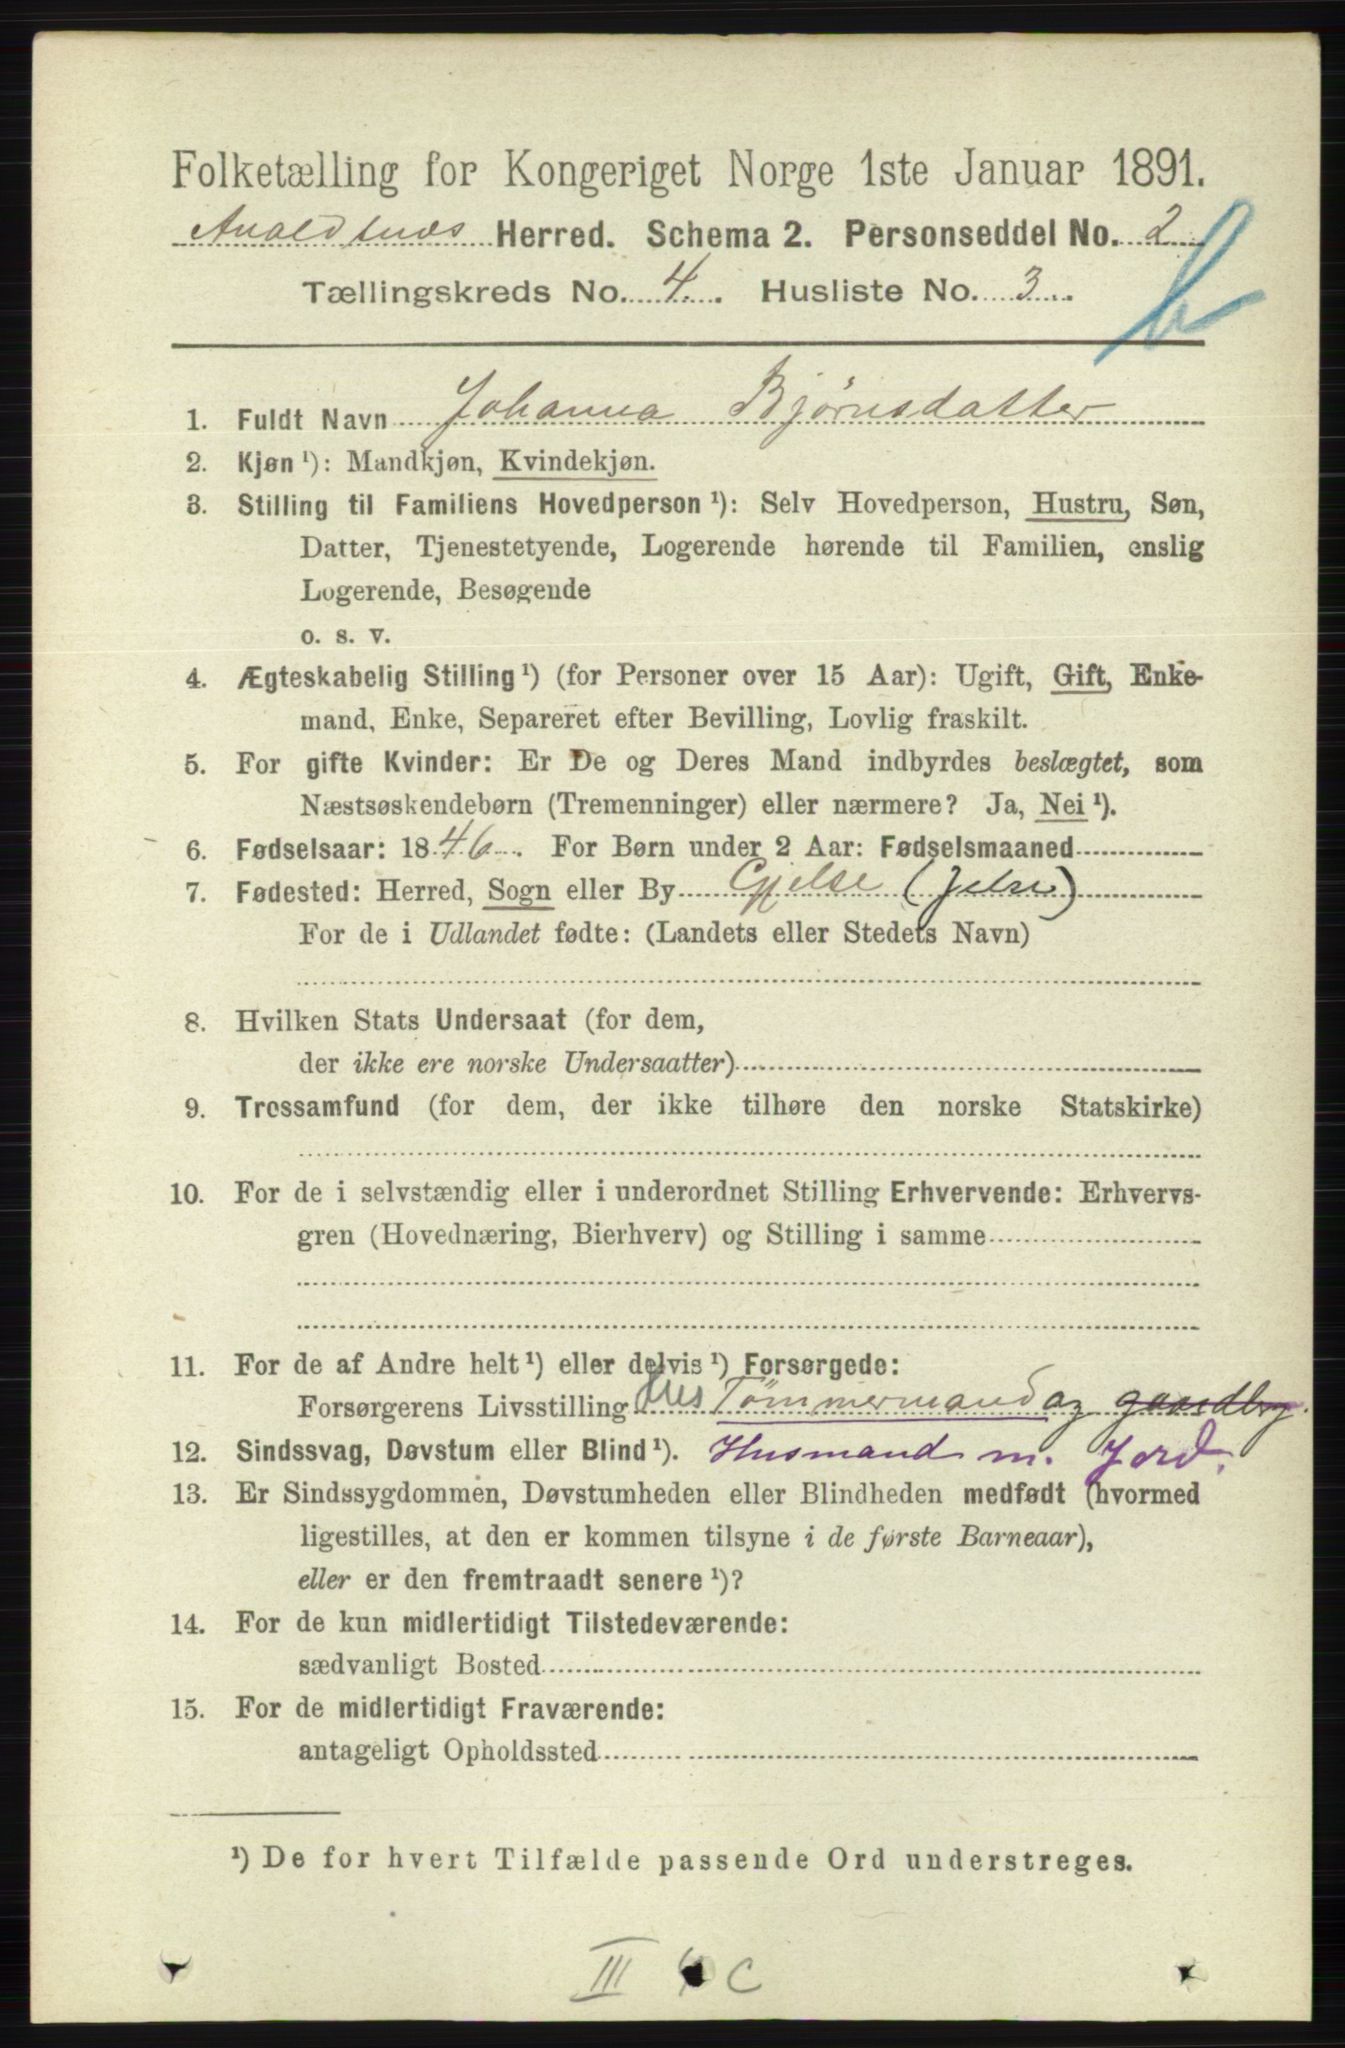 Folketælling for Kongeriget Norge 1ste Januar 1891.
Avaldsnes Herred. Schema 2. Personseddel No. 2
Tællingskreds No. 4. Husliste No. 3
b
1. Fuldt Navn Johanna Bjørnsdatter
2. Kjøn ¹): Mandkjøn, Kvindekjøn.
3. Stilling til Familiens Hovedperson ¹): Selv Hovedperson, Hustru, Søn,
Datter, Tjenestetyende, Logerende hørende til Familien, enslig
Logerende, Besøgende
o. s. v.
4. Ægteskabelig Stilling ¹) (for Personer over 15 Aar): Ugift, Gift, Enke-
mand, Enke, Separeret efter Bevilling, Lovlig fraskilt.
5. For gifte Kvinder: Er De og Deres Mand indbyrdes beslægtet, som
Næstsøskendebørn (Tremenninger) eller nærmere? Ja, Nei ¹).
6. Fødselsaar: 1846. For Børn under 2 Aar: Fødselsmaaned
7. Fødested: Herred, Sogn eller By Gjelse (Jelse)
For de i Udlandet fødte: (Landets eller Stedets Navn)
8. Hvilken Stats Undersaat (for dem,
der ikke ere norske Undersaatter)
9. Trossamfund (for dem, der ikke tilhøre den norske Statskirke)
10. For de i selvstændig eller i underordnet Stilling Erhvervende: Erhvervs-
gren (Hovednæring, Bierhverv) og Stilling i samme
11. For de af Andre helt ¹) eller delvis ¹) Forsørgede:
Forsørgerens Livsstilling Hus Tømmermand og gaardbrug.
12. Sindssvag, Døvstum eller Blind ¹). Husmand m. Jord.
13. Er Sindssygdommen, Døvstumheden eller Blindheden medfødt (hvormed
ligestilles, at den er kommen tilsyne i de første Barneaar),
eller er den fremtraadt senere ¹)?
14. For de kun midlertidigt Tilstedeværende:
sædvanligt Bosted
15. For de midlertidigt Fraværende:
antageligt Opholdssted
¹) De for hvert Tilfælde passende Ord understreges.
III C